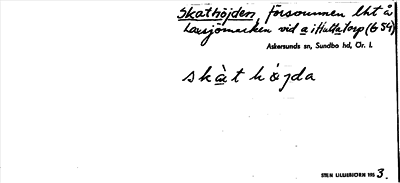 Skathöjden, försvunnen lht å
Laxsjömarken vid a i Hultatorp (G 54)
Askersunds sn, Sundbo hd, Ör. l.
skàt hö̀jda
STEN LILLIEBJÖRN 195 3.